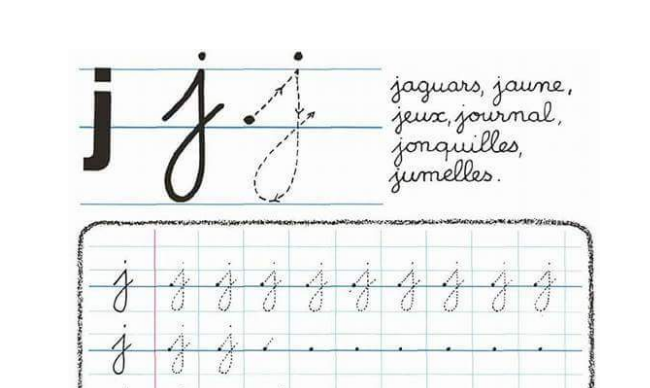 j j j
jaguars, jaune,
jeux, journal,
jonquilles,
jumelles.
j j j j j j j j j j
j j j